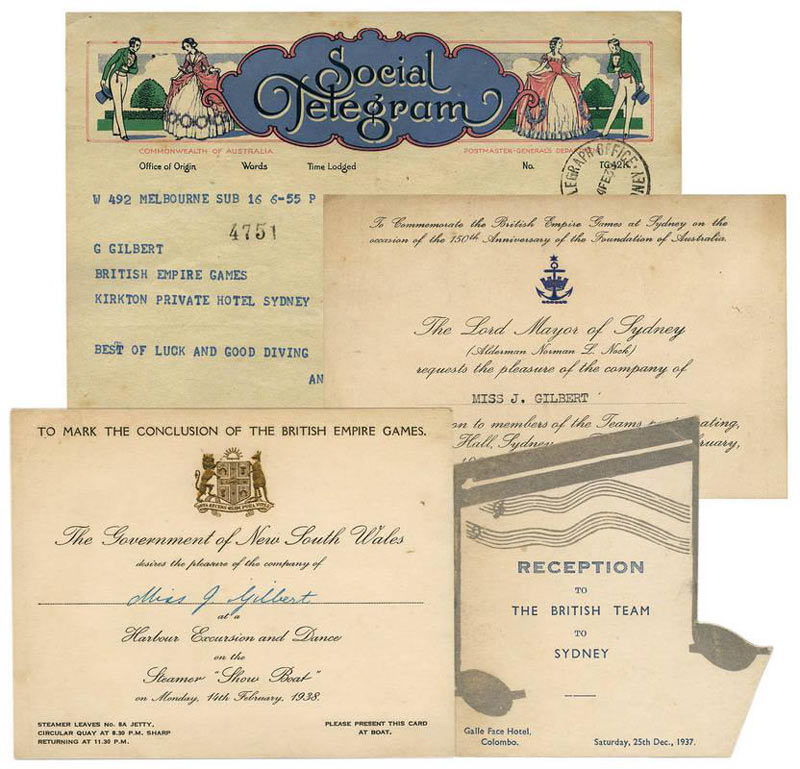 Social
Telegram
COMMONWEALTH OF AUSTRALIA
POSTMASTER-GENERAL'S DEPARTMENT
Office of Origin Words Time Lodged No. TG42K
TELEGRAPH OFFICE
W 492 MELBOURNE SUB 16 6-55 P
4751
G GILBERT
BRITISH EMPIRE GAMES
KIRKTON PRIVATE HOTEL SYDNEY
BEST OF LUCK AND GOOD DIVING
AN
To Commemorate the British Empire Games at Sydney on the
occasion of the 150th Anniversary of the Foundation of Australia.
The Lord Mayor of Sydney
(Alderman Norman L. Nock)
requests the pleasure of the company of
MISS J. GILBERT
to members of the Teams
Hall, Sydney
TO MARK THE CONCLUSION OF THE BRITISH EMPIRE GAMES.
The Government of New South Wales
desires the pleasure of the company of
Miss J Gilbert
at a
Harbour Excursion and Dance
on the
Steamer "Show Boat"
on Monday, 14th February, 1938.
STEAMER LEAVES No. 8A JETTY,
CIRCULAR QUAY AT 8.30 P.M. SHARP
RETURNING AT 11.30 P.M.
PLEASE PRESENT THIS CARD
AT BOAT.
RECEPTION
TO
THE BRITISH TEAM
TO
SYDNEY
Galle Face Hotel,
Colombo.
Saturday, 25th Dec., 1937.